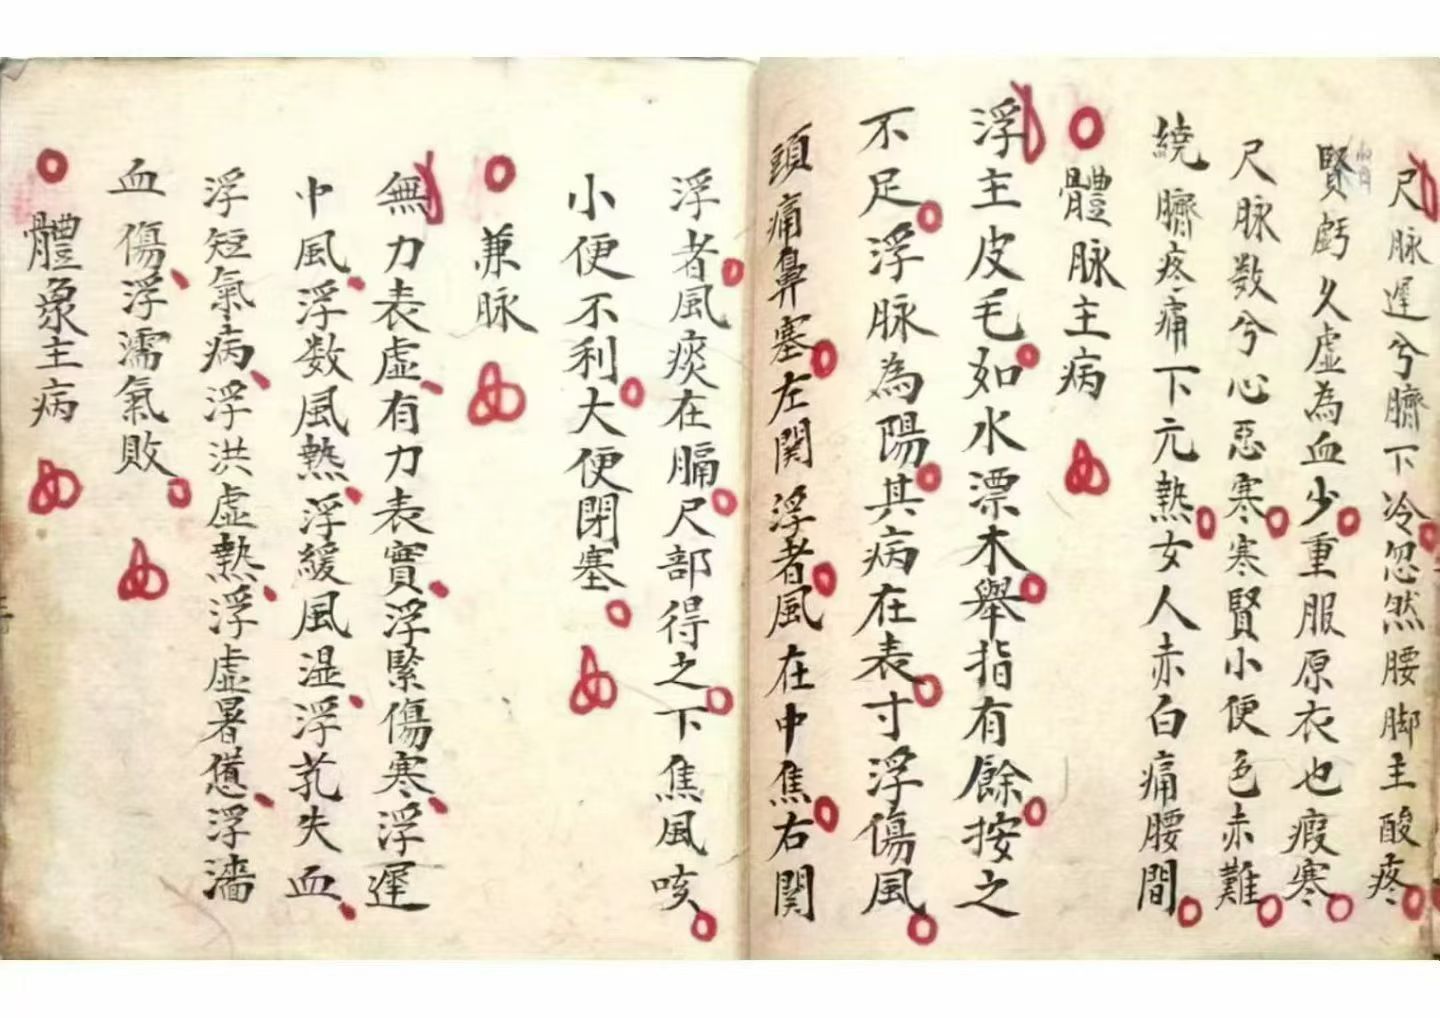 尺脉遲兮臍下冷忽然腰脚主酸疼
賢虧久虛為血少重服原衣也瘕寒
尺脉数兮心惡寒寒賢小便色赤難
繞臍疼痛下元熱女人赤白痛腰間
體脉主病
浮主皮毛如水漂木舉指有餘按之
不足浮脉為陽其病在表寸浮傷風
頭痛鼻塞左関浮者風在中焦右関
浮者風痰在膈尺部得之下焦風咳
小便不利大便閉塞
兼脉
無力表虛有力表實浮緊傷寒浮遲
中風浮数風熱浮緩風湿浮芤失血
浮短氣病浮洪虛熱浮虛暑憊浮濇
血傷浮濡氣敗
體主病